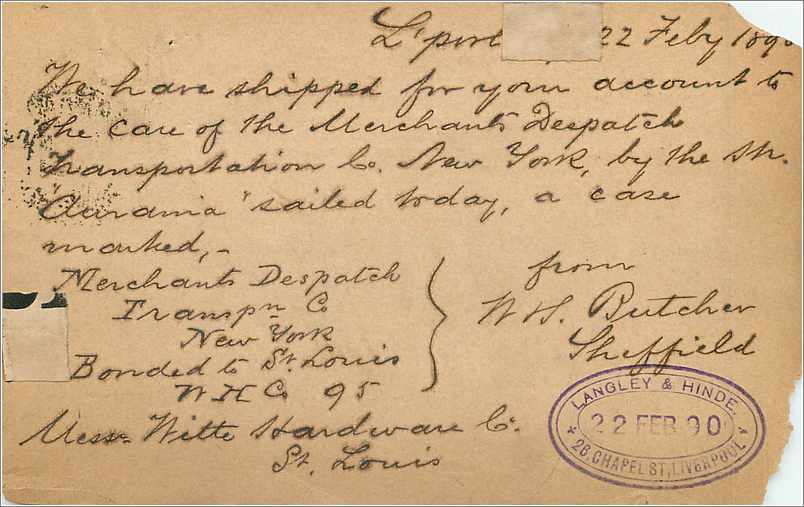 L'pool 22 Feby 1890
We have shipped for your account to
the care of the Merchants Despatch
Transportation Co. New York, by the Str.
"Aurania" sailed today, a case
marked, -
Merchants Despatch
Transpn Co
New York
Bonded to St. Louis
W H Co 95
from
W & S. Butcher
Sheffield
Messrs Witte Hardware Co.
St. Louis
LANGLEY & HINDE.
22 FEB 90
26, CHAPEL ST, LIVERPOOL